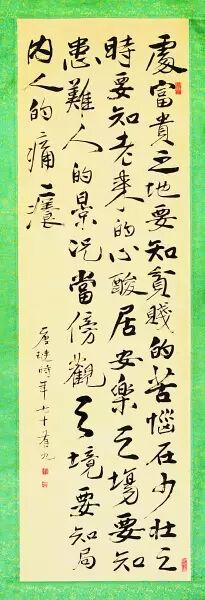 處富貴之地要知貧賤的苦惱在少壯之
時要知老來的心酸居安樂之場要知
患難人的景況當傍觀之境要知局
內人的痛癢
唐 時年七十有九